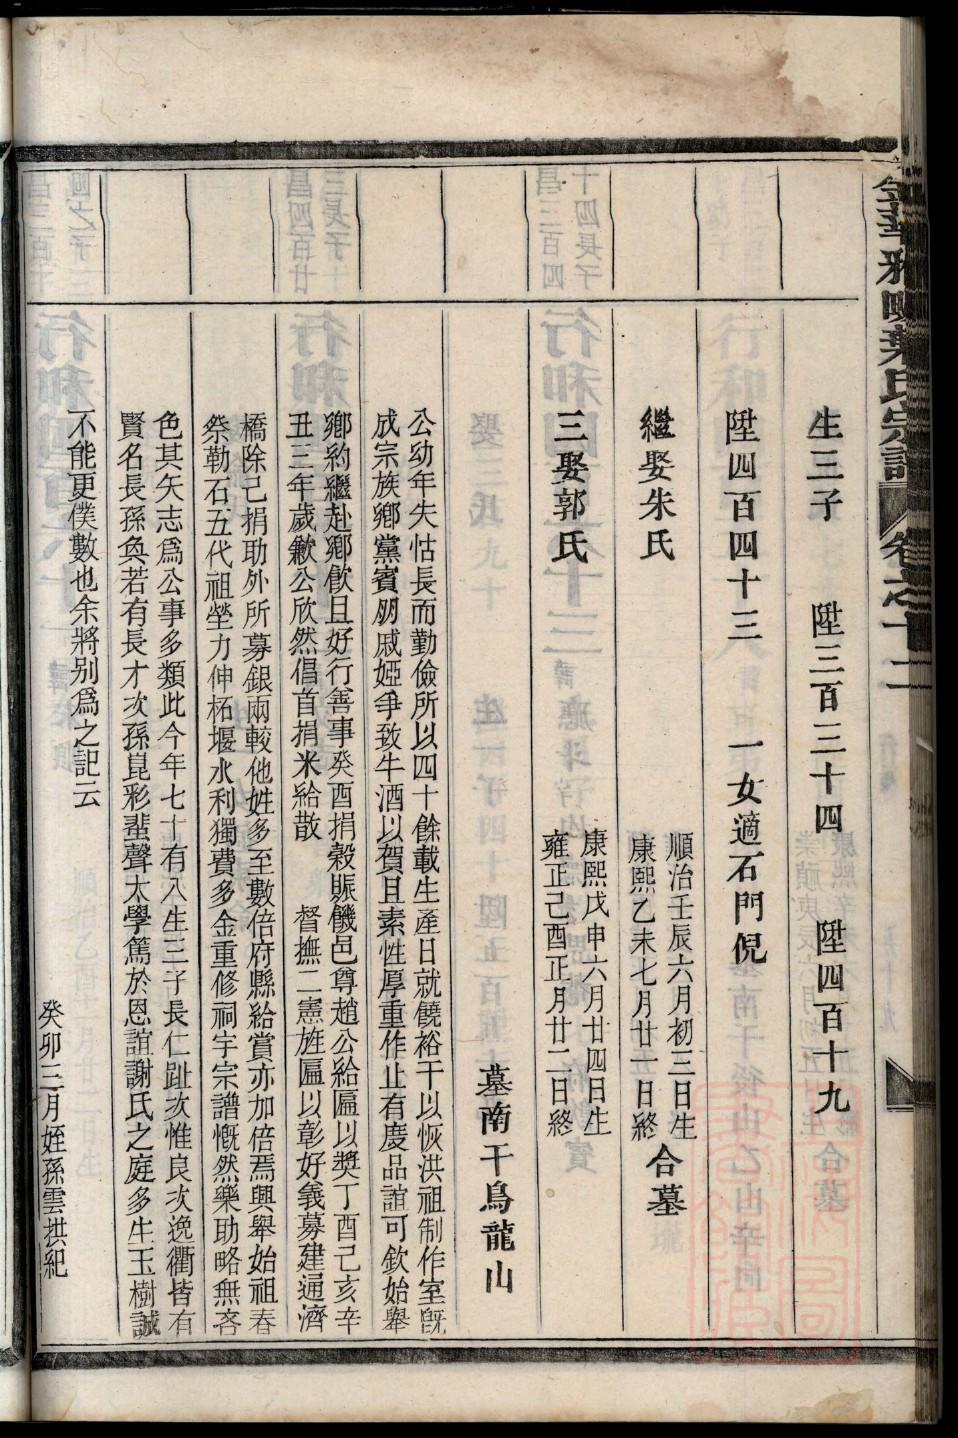 金華雅畈葉氏宗譜 卷之十二
生三子 陞三百三十四 陞四百十九
陞四百四十三 一女適石門倪
繼娶朱氏
順治壬辰六月初三日生
康熙乙未七月廿一日終
合墓
三娶郭氏
康熙戊申六月廿四日生
雍正己酉正月廿二日終
墓南干烏龍山
公幼年失怙長而勤儉所以四十餘載生產日就饒裕干以恢洪祖制作室旣
成宗族鄉黨賓朋戚婭爭致牛酒以賀且素性厚重作止有慶品誼可欽始舉
鄉約繼赴鄉飲且好行善事癸酉捐穀賑饑邑尊趙公給匾以獎丁酉己亥辛
丑三年歲歉公欣然倡首捐米給散 督撫二憲旌匾以彰好義募建通濟
橋除己捐助外所募銀兩較他姓多至數倍府縣給賞亦加倍焉興舉始祖春
祭勒石五代祖塋力伸柘堰水利獨費多金重修祠宇宗譜慨然樂助略無吝
色其矢志爲公事多類此今年七十有八生三子長仁趾次惟良次逸衢皆有
賢名長孫奐若有長才次孫昆彩蜚聲太學篤於恩誼謝氏之庭多生玉樹誠
不能更僕數也余將别爲之記云
癸卯三月姪孫雲拱紀